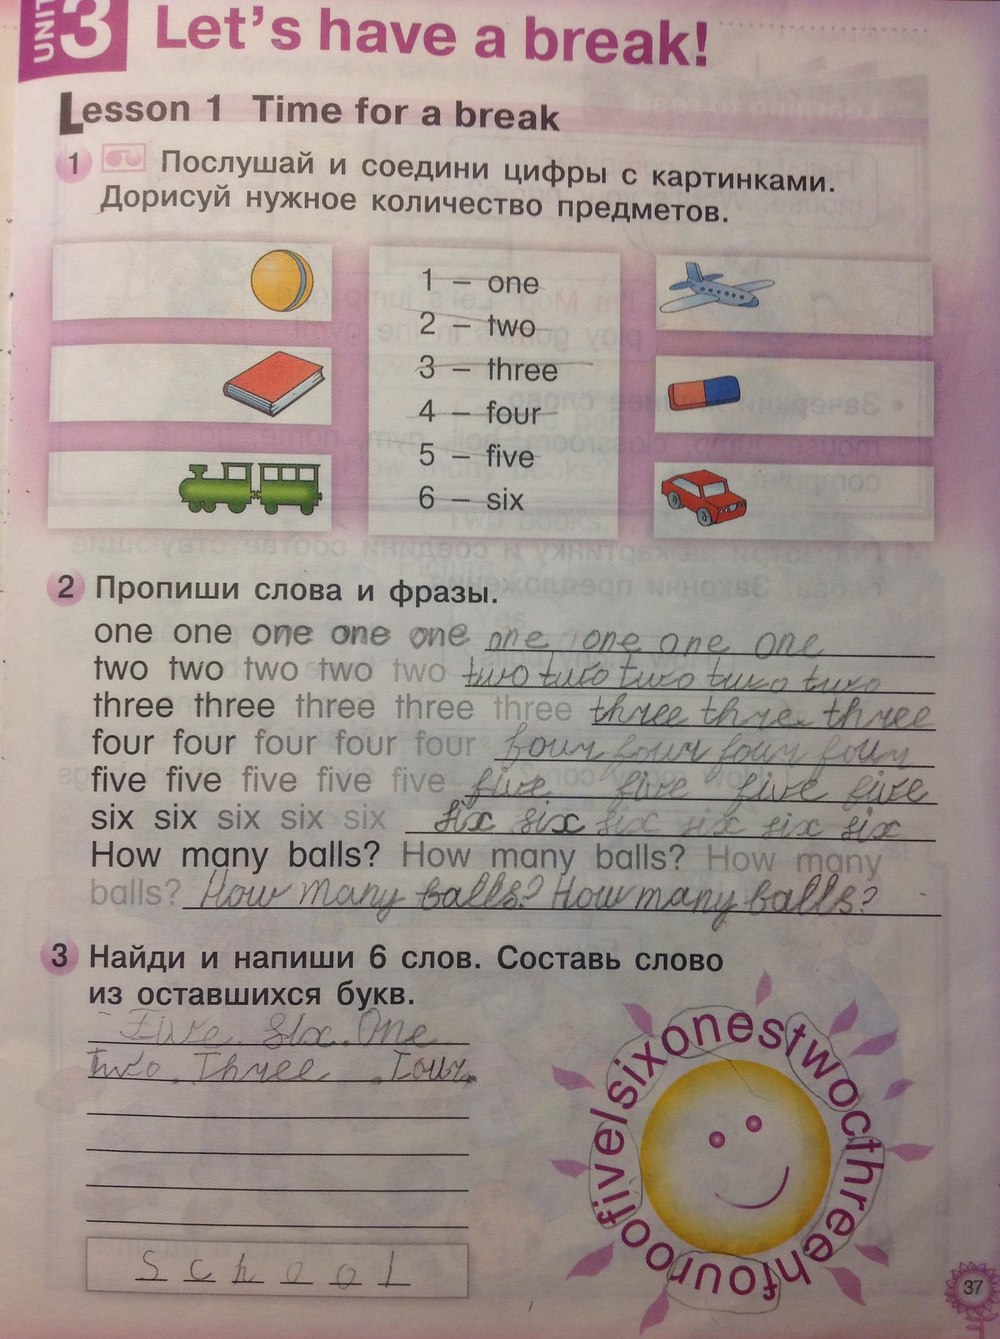 UNIT 3 Let's have a break!
Lesson 1 Time for a break
1 Послушай и соедини цифры с картинками.
Дорисуй нужное количество предметов.
1 – one
2 – two
3 – three
4 – four
5 – five
6 – six
2 Пропиши слова и фразы.
one one one one one one one one one
two two two two two two two two two two
three three three three three three three three
four four four four four four four four four
five five five five five five five five five
six six six six six six six six six six six
How many balls? How many balls? How many
balls? How many balls? How many balls?
3 Найди и напиши 6 слов. Составь слово
из оставшихся букв.
Five. Six. One
Two. Three. Four.
fivelsixonestwocthreehfouroo
s c h o o l
37